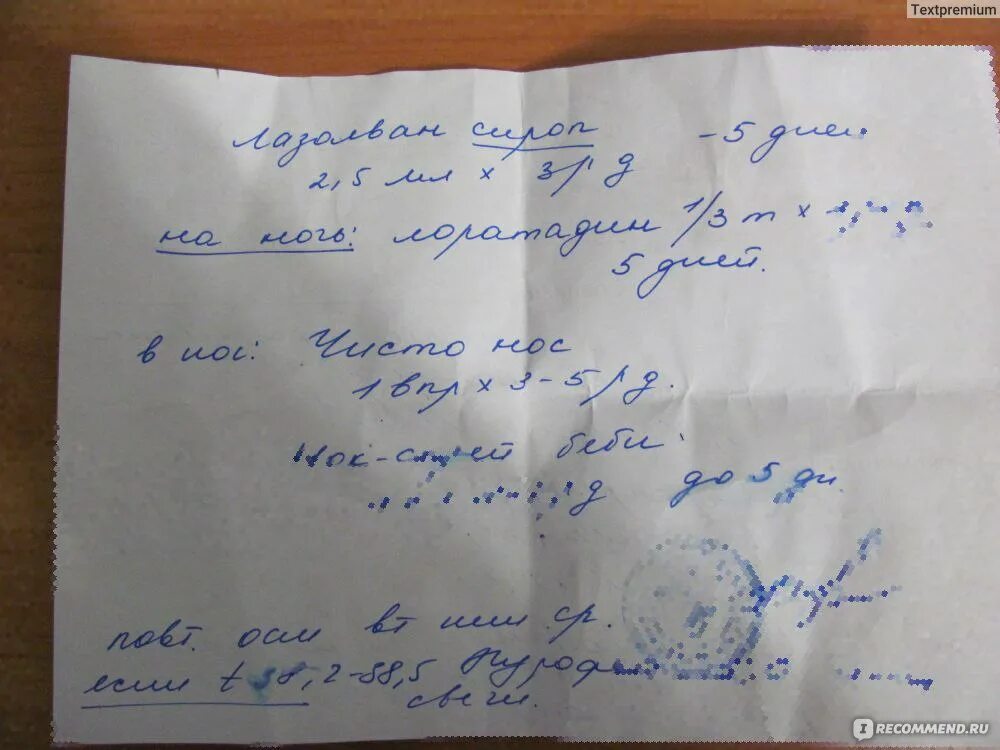 Textpremium
Лазолван сироп - 5 дней
2,5 мл х 3 р/д
на ночь: лоратадин 1/3 т х
5 дней.
в нос: Чисто нос
1 впр х 3-5 р/д.
спрей беби
д до 5 дн.
повт. осм вт или ср.
если t 38,2-38,5
свечи.
I RECOMMEND.RU